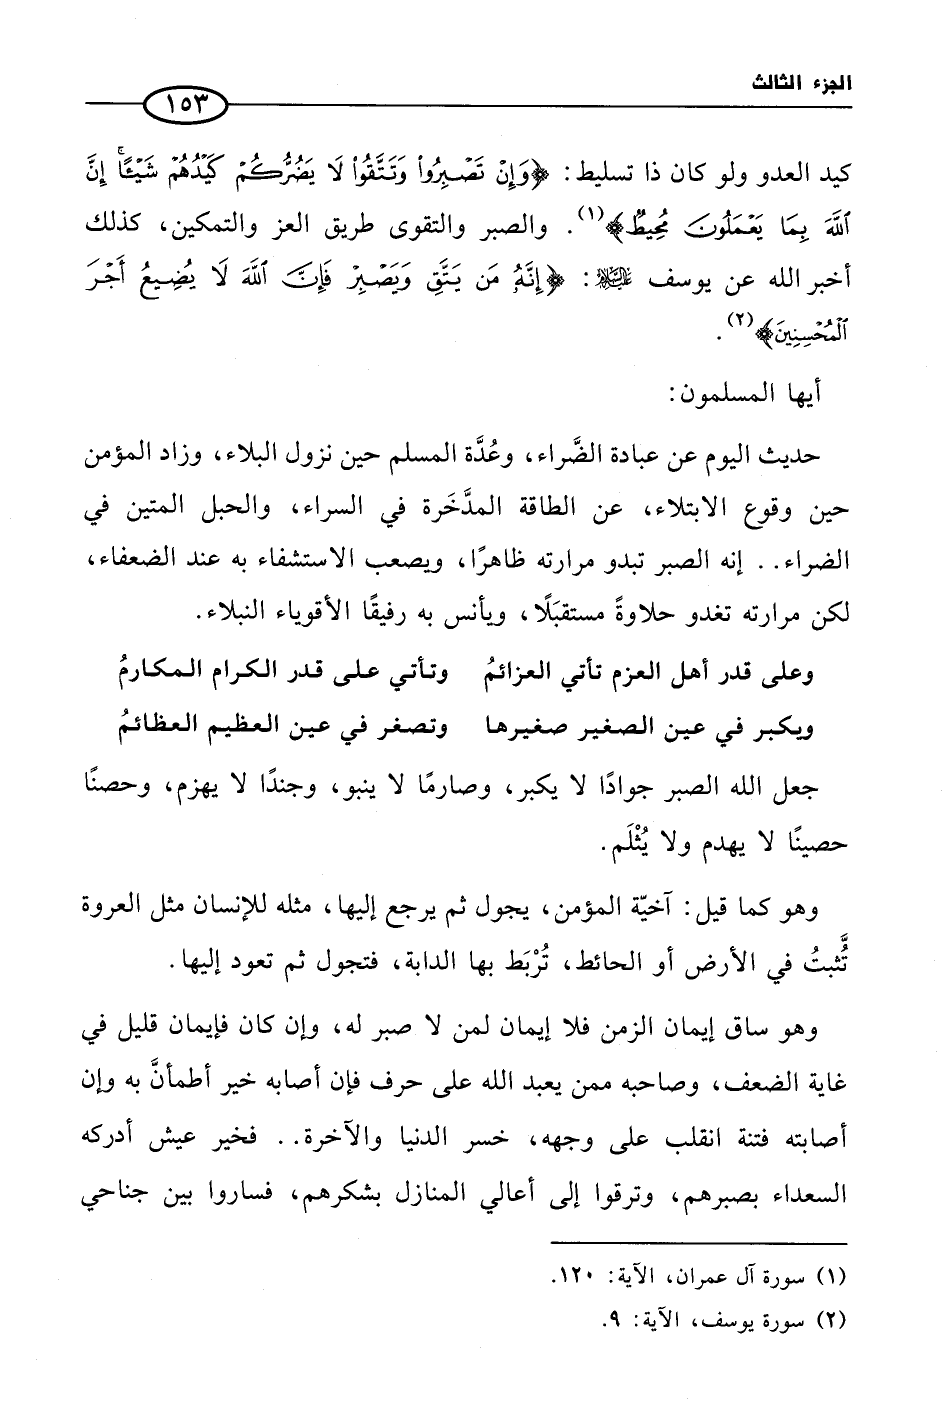 الجزء الثالث
١٥٣
كيد العدو ولو كان ذا تسليط: ﴿وَإِنْ تَصْبِرُوا۟ وَتَتَّقُوا۟ لَا يَضُرُّكُمْ كَيْدُهُمْ شَيْـًٔا ۗ إِنَّ
ٱللَّهَ بِمَا يَعْمَلُونَ مُحِيطٌ﴾(١). والصبر والتقوى طريق العز والتمكين، كذلك
أخبر الله عن يوسف عليه السلام: ﴿إِنَّهُۥ مَن يَتَّقِ وَيَصْبِرْ فَإِنَّ ٱللَّهَ لَا يُضِيعُ أَجْرَ
ٱلْمُحْسِنِينَ﴾(٢).
أيها المسلمون:
حديث اليوم عن عبادة الضَّراء، وعُدَّة المسلم حين نزول البلاء، وزاد المؤمن
حين وقوع الابتلاء، عن الطاقة المدَّخَرة في السراء، والحبل المتين في
الضراء.. إنه الصبر تبدو مرارته ظاهرًا، ويصعب الاستشفاء به عند الضعفاء،
لكن مرارته تغدو حلاوةً مستقبَلًا، ويأنس به رفيقًا الأقوياء النبلاء.
وعلى قدر أهل العزم تأتي العزائمُ وتأتي على قدر الكرام المكارمُ
ويكبر في عين الصغير صغيرها وتصغر في عين العظيم العظائمُ
جعل الله الصبر جوادًا لا يكبر، وصارمًا لا ينبو، وجندًا لا يهزم، وحصنًا
حصينًا لا يهدم ولا يُثْلَم.
وهو كما قيل: آخيّة المؤمن، يجول ثم يرجع إليها، مثله للإنسان مثل العروة
تُّثبتُ في الأرض أو الحائط، تُرْبَط بها الدابة، فتجول ثم تعود إليها.
وهو ساق إيمان الزمن فلا إيمان لمن لا صبر له، وإن كان فإيمان قليل في
غاية الضعف، وصاحبه ممن يعبد الله على حرف فإن أصابه خير أطمأنَّ به وإن
أصابته فتنة انقلب على وجهه، خسر الدنيا والآخرة.. فخير عيش أدركه
السعداء بصبرهم، وترقوا إلى أعالي المنازل بشكرهم، فساروا بين جناحي
(١) سورة آل عمران، الآية: ١٢٠.
(٢) سورة يوسف، الآية: ٩.